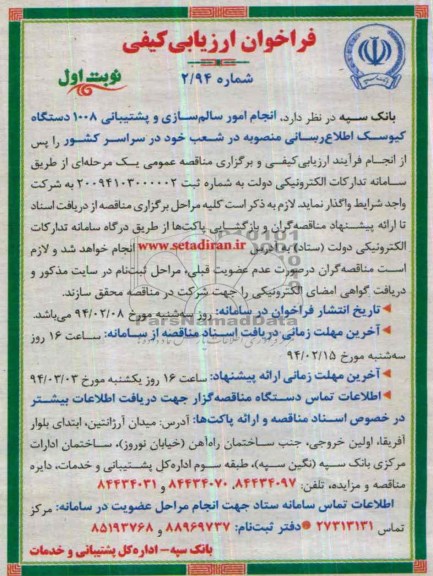 فراخوان ارزیابی کیفی
شماره ۲/۹۴
نوبت اول
بانک سپه
بانک سپه در نظر دارد، انجام امور سالم‌سازی و پشتیبانی ۱۰۰۸ دستگاه
کیوسک اطلاع‌رسانی منصوبه در شعب خود در سراسر کشور را پس
از انجام فرآیند ارزیابی‌کیفی و برگزاری مناقصه عمومی یک مرحله‌ای از طریق
سامانه تدارکات الکترونیکی دولت به شماره ثبت ۲۰۰۹۴۱۰۳۰۰۰۰۰۲ به شرکت
واجد شرایط واگذار نماید. لازم به ذکر است کلیه مراحل برگزاری مناقصه از دریافت اسناد
تا ارائه پیشنهاد مناقصه‌گران و بازگشایی پاکت‌ها از طریق درگاه سامانه تدارکات
الکترونیکی دولت (ستاد) به آدرس www.setadiran.ir انجام خواهد شد و لازم
است مناقصه‌گران درصورت عدم عضویت قبلی، مراحل ثبت‌نام در سایت مذکور و
دریافت گواهی امضای الکترونیکی را جهت شرکت در مناقصه محقق سازند.
◄تاریخ انتشار فراخوان در سامانه: روز سه‌شنبه مورخ ۹۴/۰۲/۰۸ می‌باشد.
◄آخرین مهلت زمانی دریافت اسناد مناقصه از سامانه: ساعت ۱۶ روز
سه‌شنبه مورخ ۹۴/۰۲/۱۵
◄آخرین مهلت زمانی ارائه پیشنهاد: ساعت ۱۶ روز یکشنبه مورخ ۹۴/۰۳/۰۳
◄اطلاعات تماس دستگاه مناقصه‌گزار جهت دریافت اطلاعات بیشتر
در خصوص اسناد مناقصه و ارائه پاکت‌ها: آدرس: میدان آرژانتین، ابتدای بلوار
آفریقا، اولین خروجی، جنب ساختمان راه‌آهن (خیابان نوروز)، ساختمان ادارات
مرکزی بانک سپه (نگین سپه)، طبقه سوم اداره‌کل پشتیبانی و خدمات، دایره
مناقصه و مزایده، تلفن: ۸۴۴۳۴۰۹۷، ۸۴۴۳۴۰۷۰ و ۸۴۴۳۴۰۳۱
اطلاعات تماس سامانه ستاد جهت انجام مراحل عضویت در سامانه: مرکز
تماس ۲۷۳۱۳۱۳۱ ●دفتر ثبت‌نام: ۸۸۹۶۹۷۳۷ و ۸۵۱۹۳۷۶۸
بانک سپه– اداره‌کل پشتیبانی و خدمات
ParsNamadData